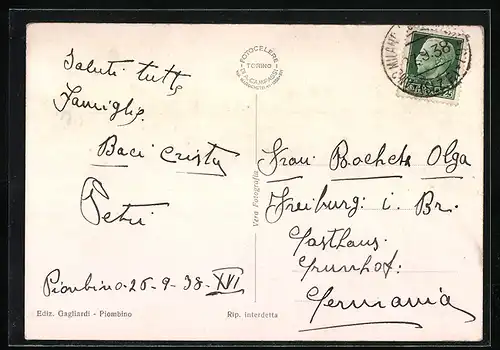 Saluti tutta
Famiglia
Baci Crista
Petri
Piombino 26-9-38-XVI
Ediz. Gagliardi - Piombino
FOTOCELERE
TORINO
DI A. CAMPASSI
Vera Fotografia
Rip. interdetta
MILANO
38
Frau Bochets Olga
Freiburg i. Br.
Gasthaus
Grunhof:
Germania